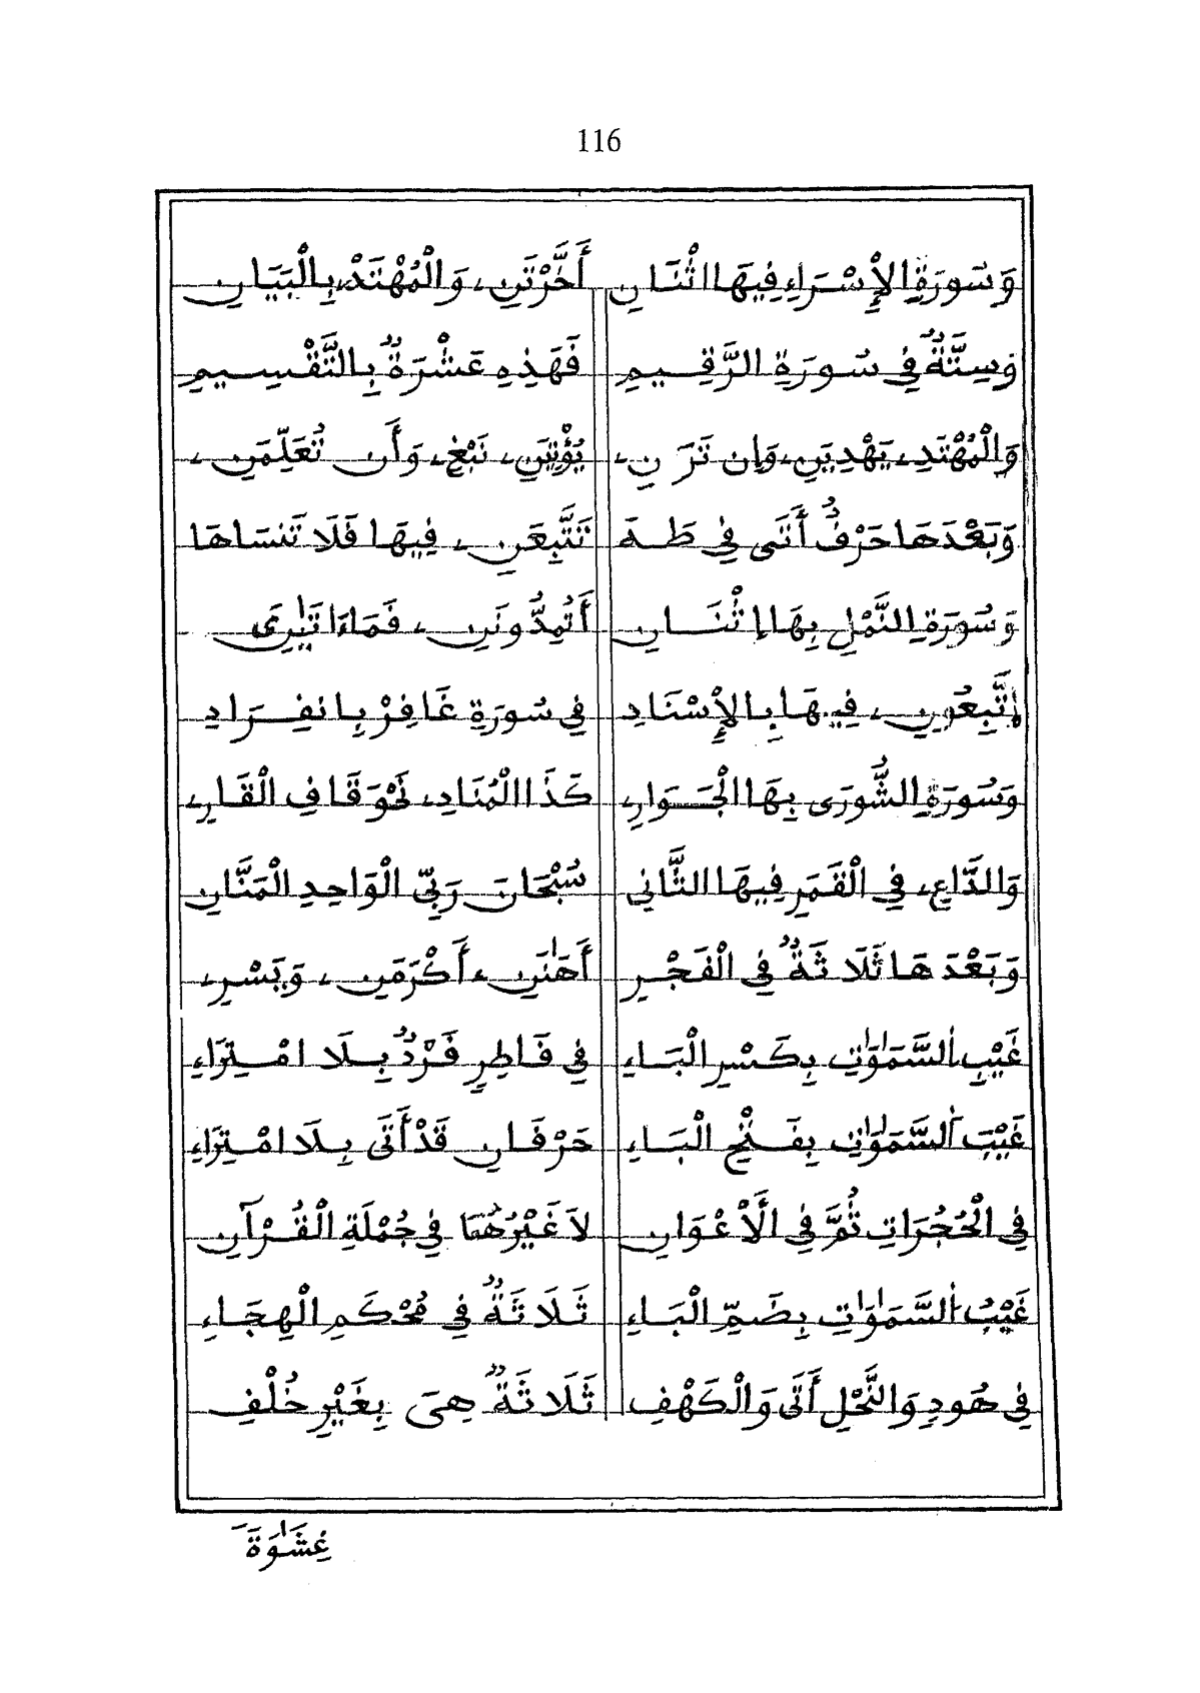 116
وَسُورَةِ الإِسْرَاءِ فِيهَا اثْنَانِ أَخَّرْتَنِ، وَالْمُهْتَدِ، بِالْبَيَانِ
وَسِتَّةٌ فِي سُورَةِ الرَّقِيمِ فَهَذِهِ عَشْرَةٌ بِالتَّقْسِيمِ
وَالْمُهْتَدِ، يَهْدِيَنِ، وَإِن تَرَنِ، يُؤْتِيَنِ، نَبْغِ، وَأَن تُعَلِّمَنِ،
وَبَعْدَهَا حَرْفٌ أَتَى فِي طَهَ تَتَّبِعَنِ، فِيهَا فَلَا تَنسَاهَا
وَسُورَةِ النَّمْلِ بِهَا إثْنَانِ أَتُمِدُّونَنِ، فَمَاءَاتَيٰنِۦَ
إتَّبِعُونِ، فِيهَا بِالإِسْنَادِ فِي سُورَةِ غَافِرْ بِانفِرَادِ
وَسُورَةِ الشُّورَى بِهَا الْجَوَارِ، كَذَا الْمُنَادِ، نَحْوَ قَافِ الْقَارِ،
وَالدَّاعِ، فِي الْقَمَرِ فِيهَا الثَّانِي سُبْحَانَ رَبِّي الْوَاحِدِ الْمَنَّانِ
وَبَعْدَهَا ثَلَاثَةٌ فِي الْفَجْرِ أَهَٰنَنِ، أَكْرَمَنِ، وَيَسْرِ،
غَيْبِ اَلسَّمَٰوَٰتِ بِكَسْرِ الْبَاءِ فِي فَاطِرٍ فَرْدٌ بِلَا امْتِرَاءِ
غَيْبَ اَلسَّمَٰوَٰتِ بِفَتْحِ الْبَاءِ حَرْفَانِ قَدْ أَتَى بِلَا امْتِرَاءِ
فِي الْحُجُرَاتِ ثُمَّ فِي الَأعْوَانِ لَا غَيْرُهُمَا فِي جُمْلَةِ الْقُرْآنِ
غَيْبُ اَلسَّمَٰوَٰتِ بِضَمِّ الْبَاءِ ثَلَاثَةٌ فِي مُحْكَمِ الْهِجَاءِ
فِي هُودِ وَالنَّحْلِ أَتَى وَالْكَهْفِ ثَلَاثَةٌ هِيَ بِغَيْرِ خُلْفِ
غِشَٰوَةَ